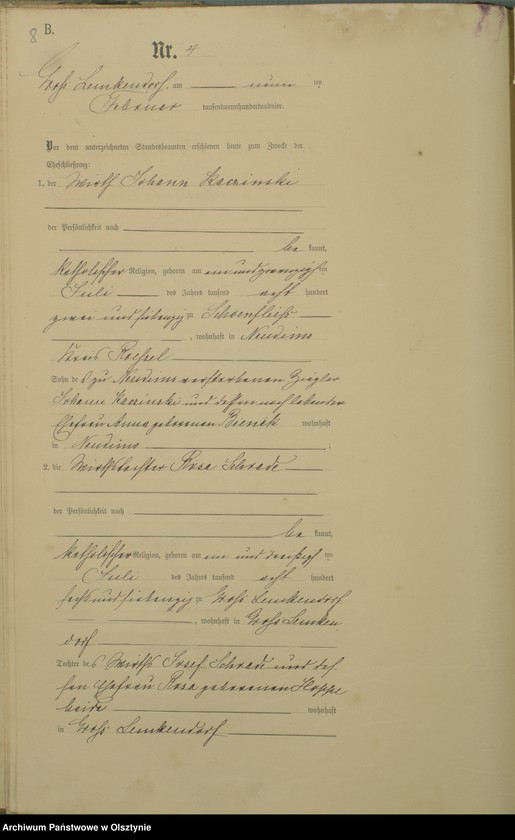 8 B.
Nr. 4
Gross Lemkendorf, am neun ten
Februar tausendneunhundertundvier.
Vor dem unterzeichneten Standesbeamten erschienen heute zum Zwecke der
Eheschließung:
1. der Wirth Johann Kaczinski
der Persönlichkeit nach
be kannt,
katholischer Religion, geboren am ein und zwanzigsten
Juli des Jahres tausend acht hundert
zwei und siebenzig zu Schoenfliess
, wohnhaft in Neudims
Kreis Roessel
Sohn des zu Neudims verstorbenen Ziegler
Johann Kaczinski und dessen noch lebender
Ehefrau Anna geborenen wohnhaft
in Neudims
2. die Wirthstochter Rosa Schrade
der Persönlichkeit nach
be kannt,
katholischer Religion, geboren am ein und dreißigsten
Juli des Jahres tausend acht hundert
sechs und siebenzig zu Gross Lemkendorf
, wohnhaft in Gross Lemken
dorf
Tochter des Wirths Josef Schrade und des
sen Ehefrau Rosa geborenen Hoppe
beide wohnhaft
in Gross Lemkendorf
Archiwum Państwowe w Olsztynie